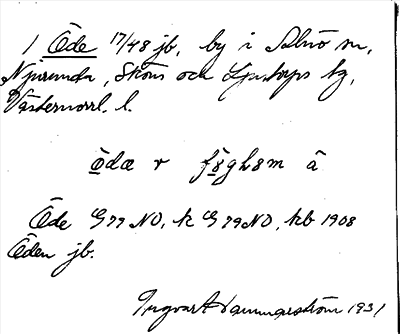 1 Öde 17/48 jb, by i Alnö sn,
Njurunda, Sköns och Ljustorps tg,
Västernorrl. l.
ödæ v föghøm å
Öde G79 NO, k G79 NO, kb 1908
Öden jb.
Ingvart Hammarström 1931